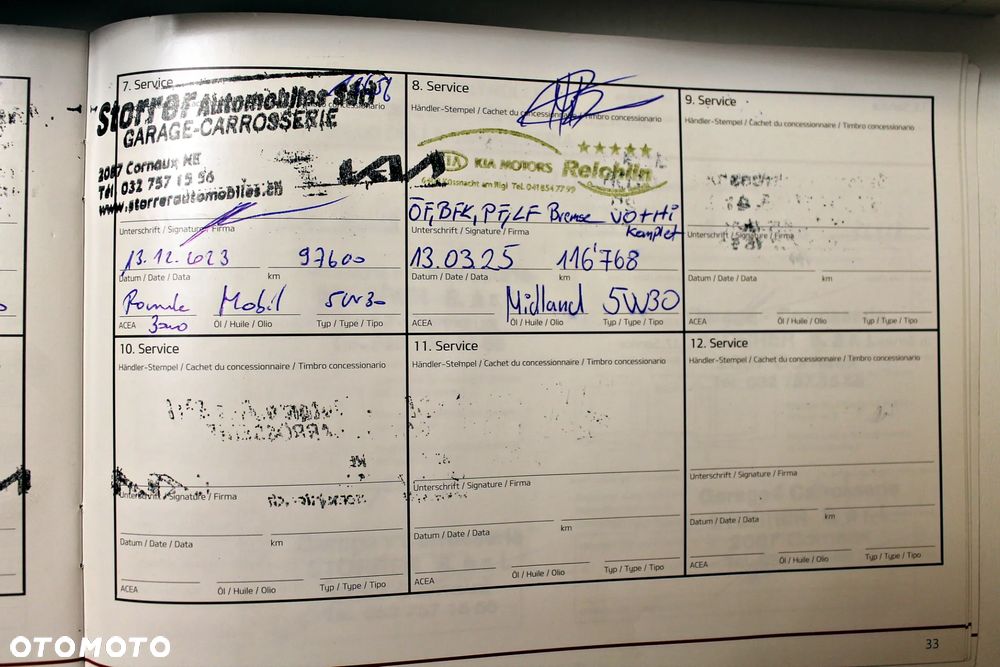 7. Service
Storrer Automobiles Sàrl
GARAGE-CARROSSERIE
2087 Cornaux NE
Tél. 032 757 15 56
www.storrerautomobiles.ch
KIA
Unterschrift / Signature / Firma
13.12.2023 97600
Datum / Date / Data km
Mobil 5W30
3000
ACEA Öl / Huile / Olio Typ / Type / Tipo
8. Service
Händler-Stempel / Cachet du concessionnaire / Timbro concessionario
KIA KIA MOTORS Reichlin
Küssnacht am Rigi Tel. 041 854 77 99
ÖF, BFK, PF, LF Bremse VO + Hi
komplet
Unterschrift / Signature / Firma
13.03.25 116'768
Datum / Date / Data km
Midland 5W30
ACEA Öl / Huile / Olio Typ / Type / Tipo
9. Service
Händler-Stempel / Cachet du concessionnaire / Timbro concessionario
Unterschrift / Signature / Firma
Datum / Date / Data km
ACEA Öl / Huile / Olio Typ / Type / Tipo
10. Service
Händler-Stempel / Cachet du concessionnaire / Timbro concessionario
Unterschrift / Signature / Firma
Datum / Date / Data km
ACEA Öl / Huile / Olio Typ / Type / Tipo
11. Service
Händler-Stempel / Cachet du concessionnaire / Timbro concessionario
Unterschrift / Signature / Firma
Datum / Date / Data km
ACEA Öl / Huile / Olio Typ / Type / Tipo
12. Service
Händler-Stempel / Cachet du concessionnaire / Timbro concessionario
Unterschrift / Signature / Firma
Datum / Date / Data km
ACEA Öl / Huile / Olio Typ / Type / Tipo
33
OTOMOTO